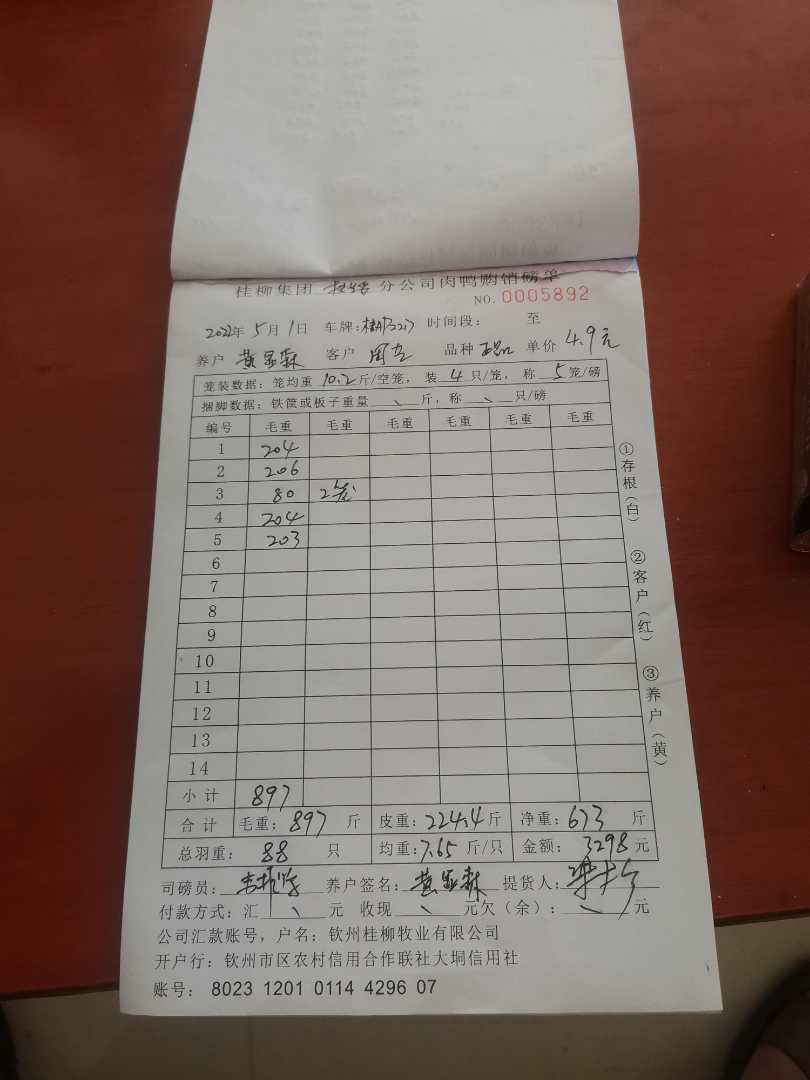 桂柳集团 分公司肉鸭购销磅单
NO. 0005892
2022年 5月 1日 车牌: 时间段: 至
养户 黄显森 客户 周 品种 单价 4.9元
笼装数据: 笼均重 10.2 斤/空笼, 装 4 只/笼, 称 5 笼/磅
捆脚数据: 铁筐或板子重量 \ 斤, 称 \ 只/磅
编号 毛重 毛重 毛重 毛重 毛重 毛重
1 204
2 206
3 80 2笼
4 204
5 203
6
7
8
9
10
11
12
13
14
小计 897
合计 毛重: 897 斤 皮重: 224.4 斤 净重: 673 斤
总羽重: 88 只 均重: 7.65 斤/只 金额: 3298 元
司磅员: 养户签名: 黄显森 提货人:
付款方式: 汇 \ 元 收现 \ 元欠(余): \ 元
公司汇款账号, 户名: 钦州桂柳牧业有限公司
开户行: 钦州市区农村信用合作联社大垌信用社
账号: 8023 1201 0114 4296 07
①存根(白)
②客户(红)
③养户(黄)